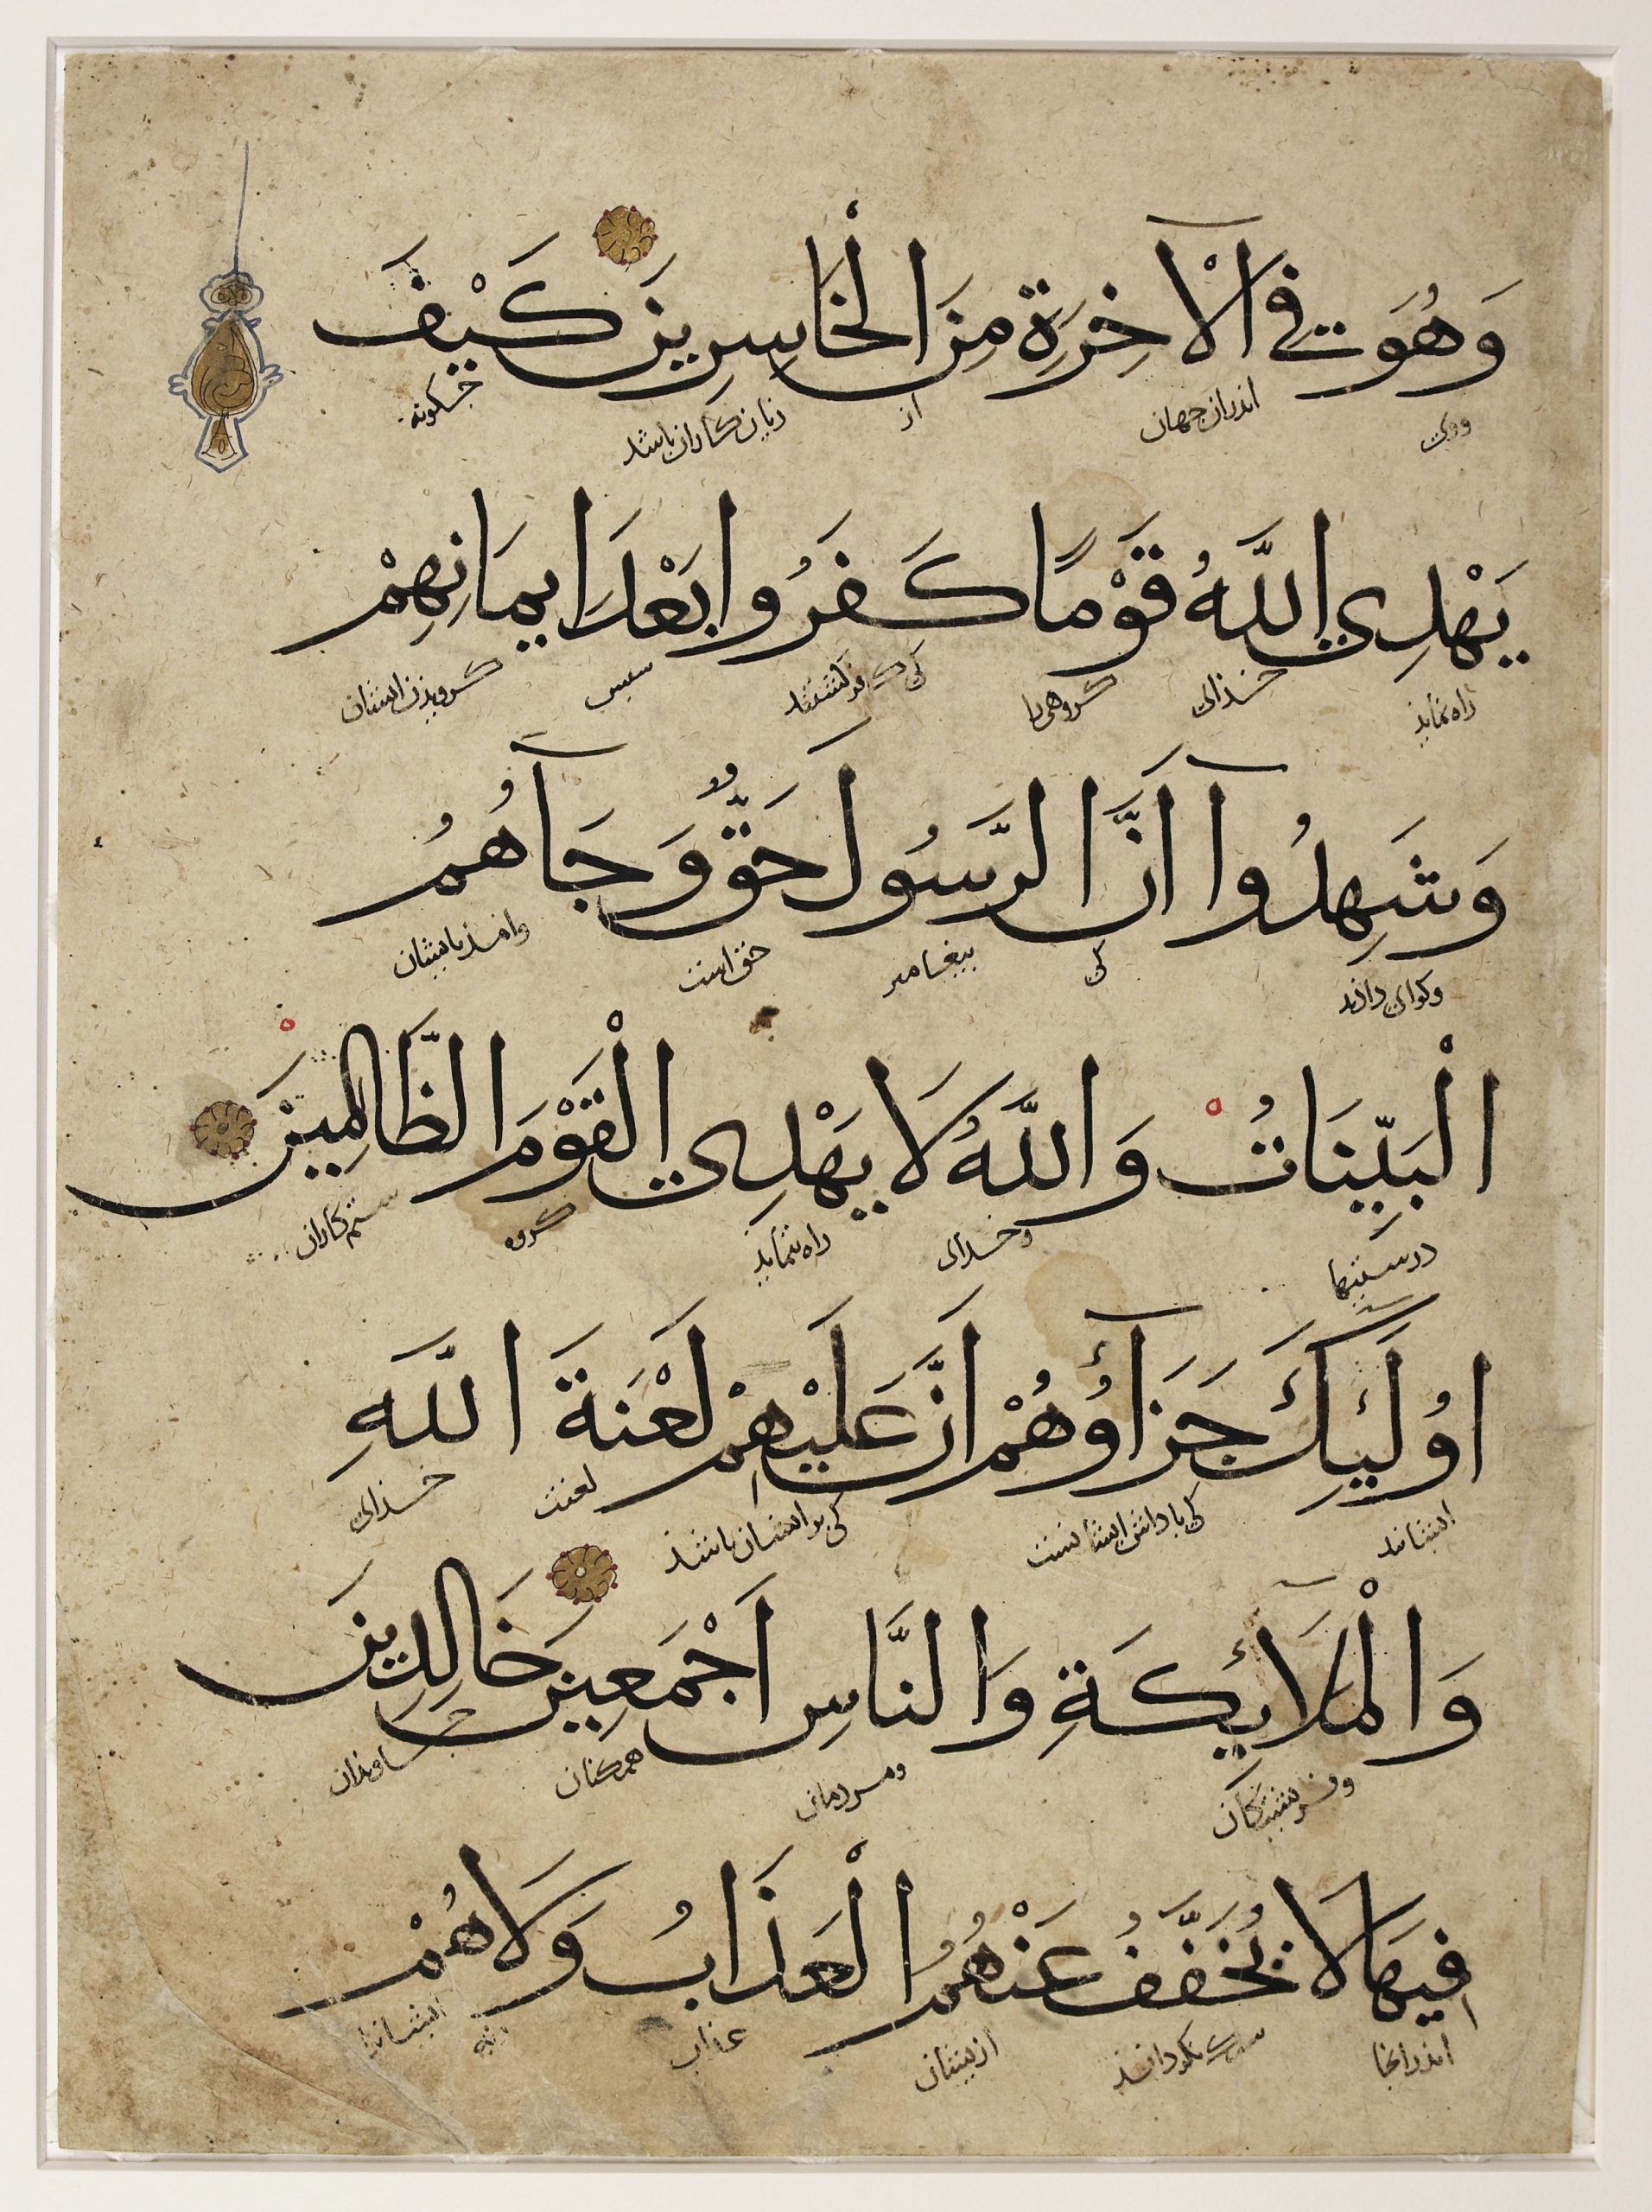 وَهُوَ فِي الْآخِرَةِ مِنَ الْخَاسِرِينَ كَيْفَ
ووی اندران جهان از زیان کاران باشد چکونه
يَهْدِي اللَّهُ قَوْمًا كَفَرُوا بَعْدَ ايمَانِهِمْ
راه نماید خذای کروهی را کی کافر کشتند سپس کرویذن ایشان
وَشَهِدُوآ اَنَّ الرَّسُولَ حَقٌّ وَجَآهُمُ
وکوای داذند کی پیغامبر حق است وامذ بایشان
الْبَيِّنَاتُ وَاللَّهُ لَا يَهْدِي الْقَوْمَ الظَّالِمِينَ
درستیها وخذای راه ننماید کروه ستم کاران
اُولَئِكَ جَزَآؤُهُمْ اَنَّ عَلَيْهِمْ لَعْنَةَ اللَّهِ
ایشانند کی باداش ایشانست کی بر ایشان باشذ لعنت خذای
وَالْمَلَآئِكَةِ وَالنَّاسِ اَجْمَعِينَ خَالِدِينَ
وفریشتکان ومردمان همکنان جاویذان
فِيهَا لَا يُخَفَّفُ عَنْهُمُ الْعَذَابُ وَلَا هُمْ
اندرانجا سبک نکردانند ازیشان عذاب ونه ایشانند